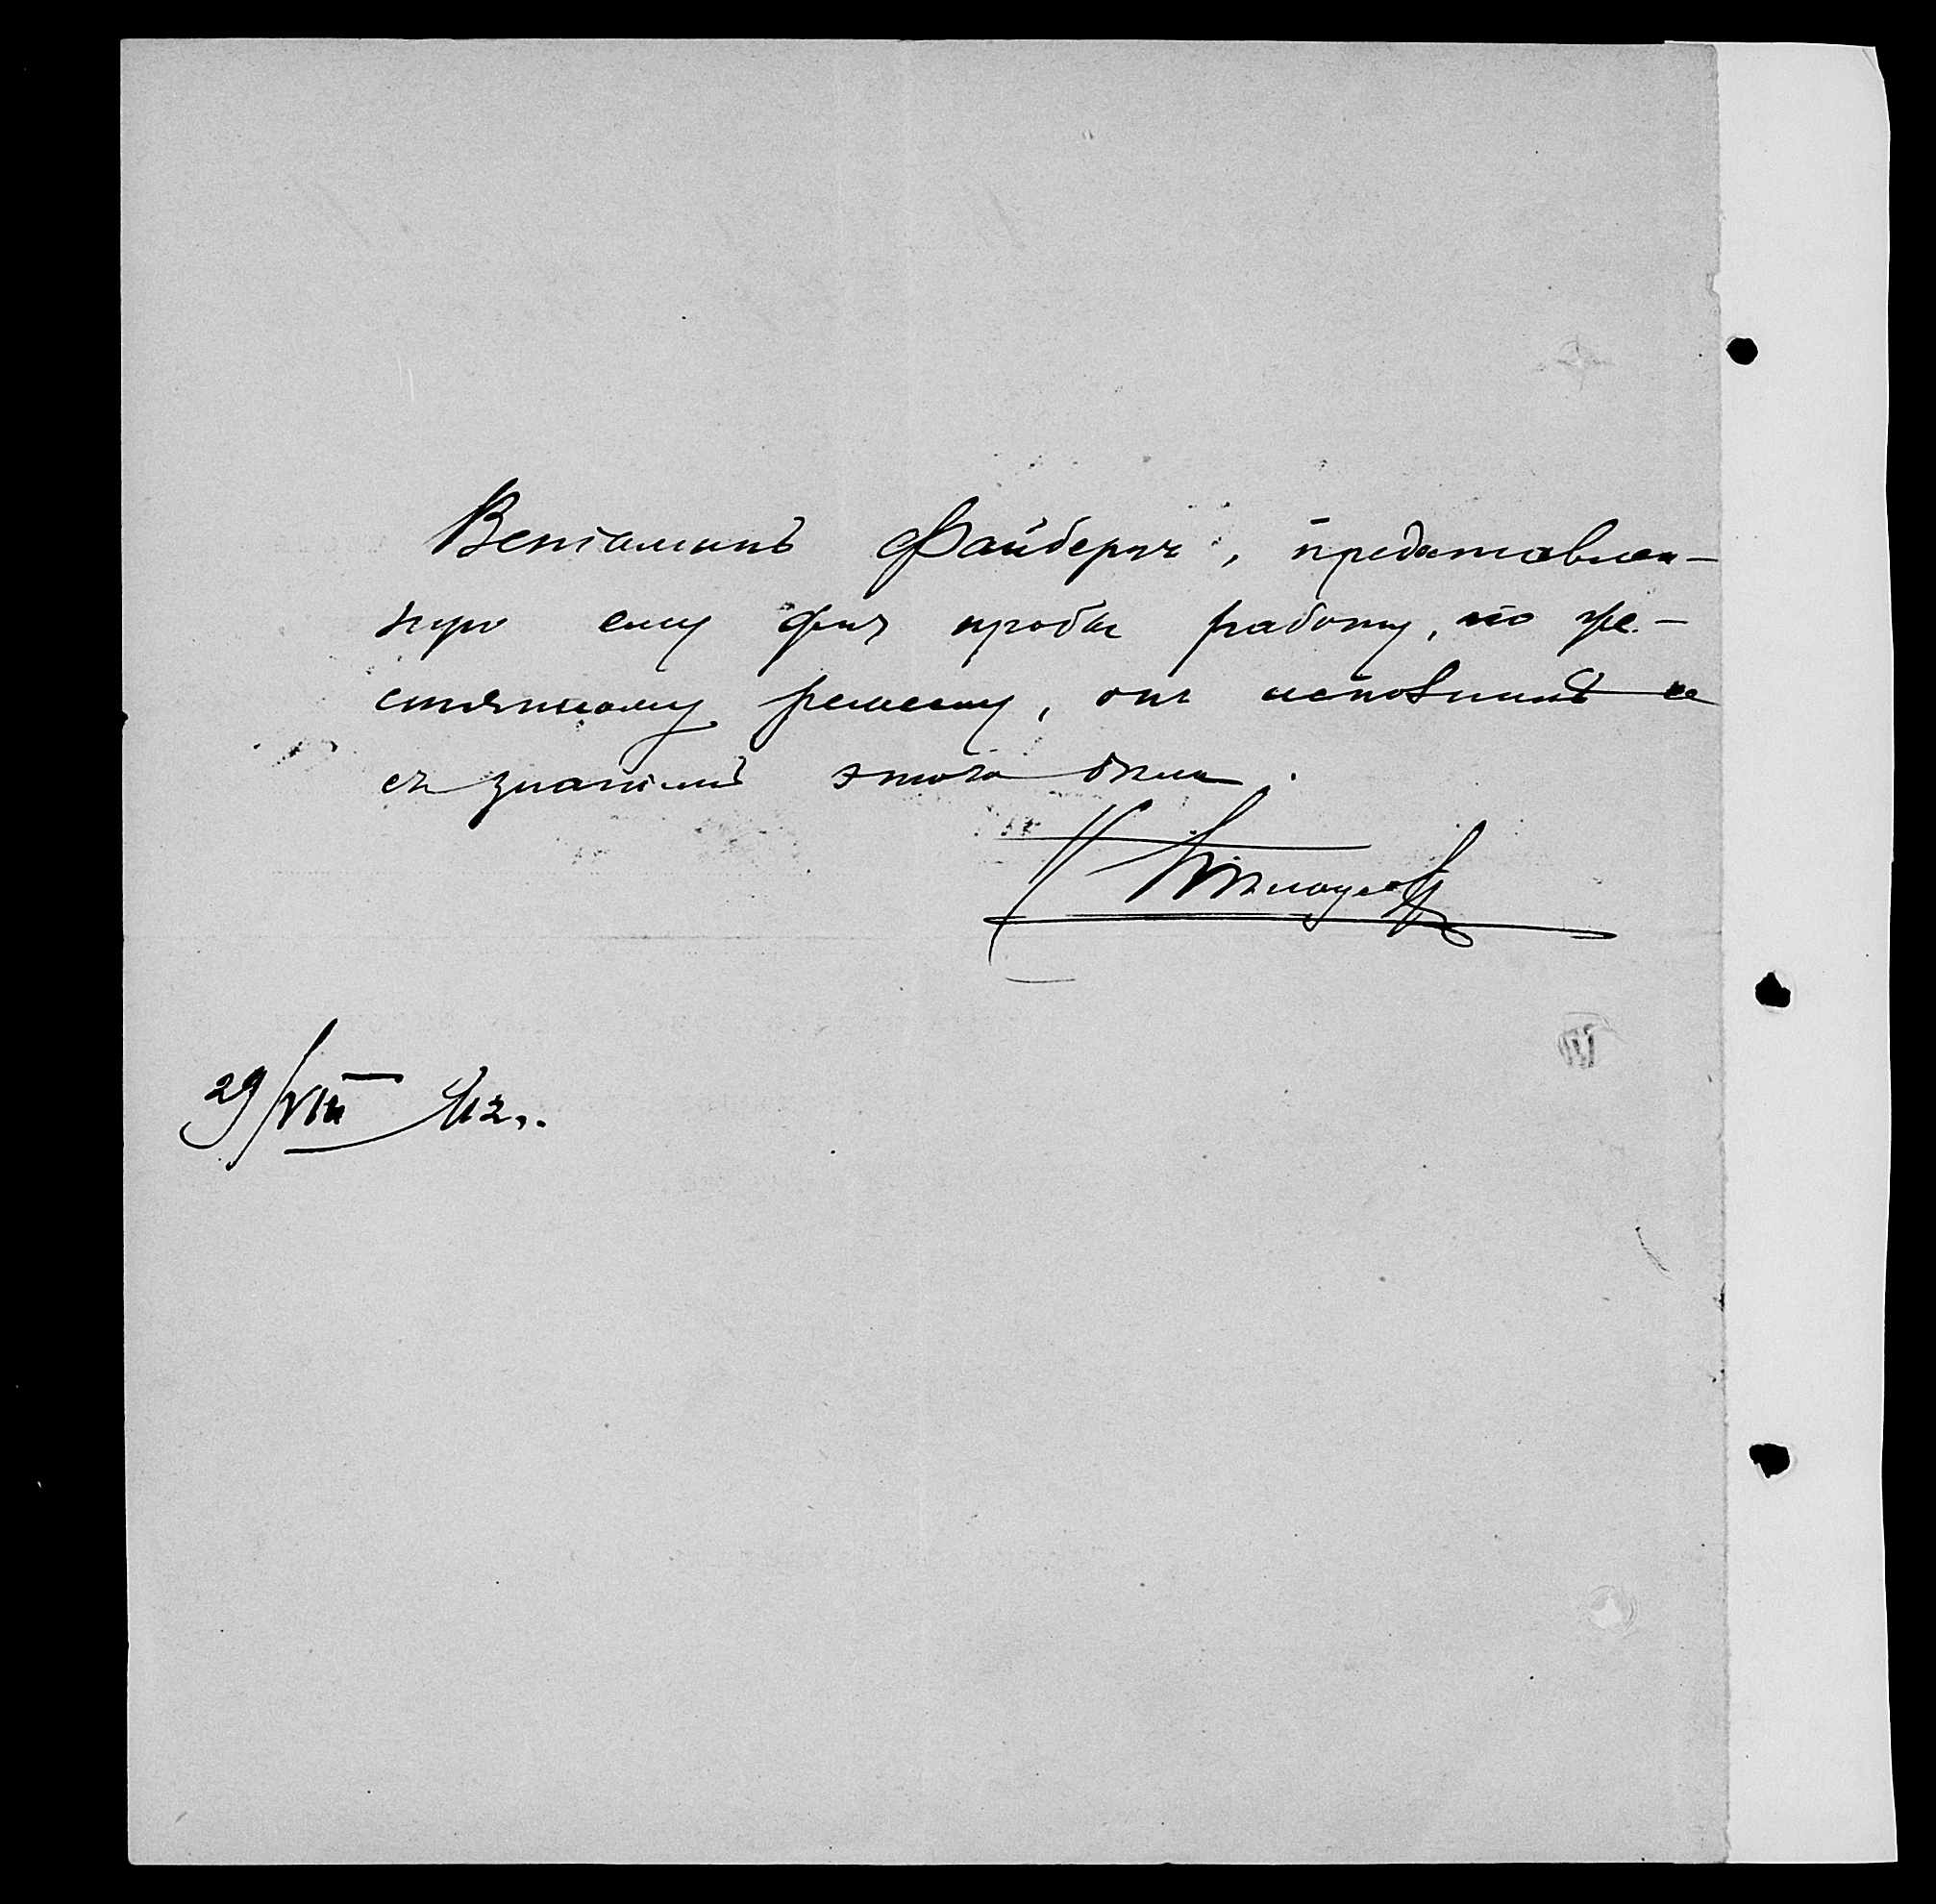 Веніаминъ Файбергъ, предоставлен-
ную ему для пробы работу, по же-
стяному ремеслу, онъ исполнилъ ее
съ знаніемъ этого дѣла.
29/VIII 912 г.